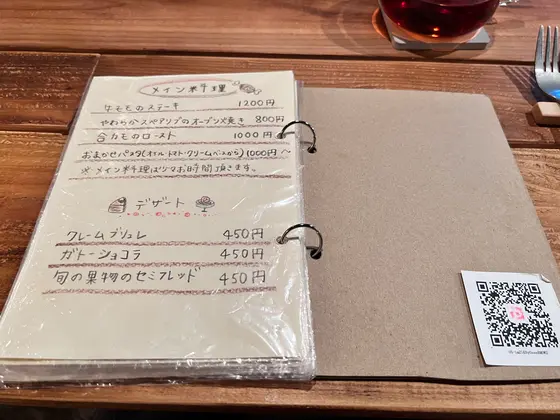 メイン料理
牛ももステーキ 1200円
やわらかスペアリブのオーブン焼き 800円
合カモのロースト 1000円
おまかせパスタ(オイル・トマト・クリームベースから) 1000円〜
※メイン料理は少々お時間頂きます。
デザート
クレームブリュレ 450円
ガトーショコラ 450円
旬の果物のセミフレッド 450円